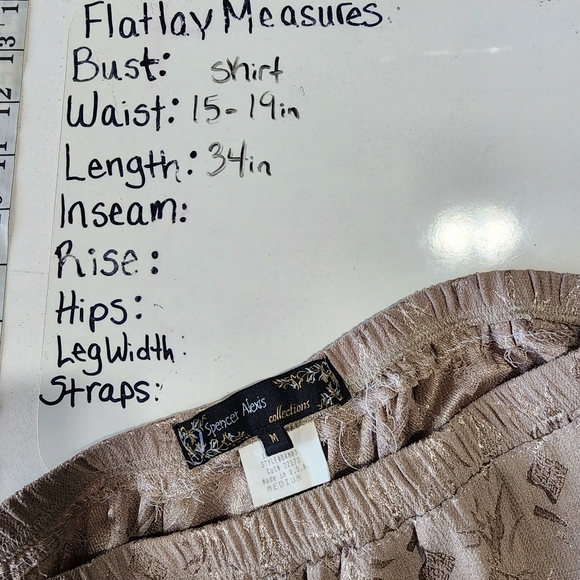 Flatlay Measures
Bust: shirt
Waist: 15-19in
Length: 34in
Inseam:
Rise:
Hips:
Leg Width:
Straps:
13
12
11
Spencer Alexis
collections
M
Made in U.S.A.
MEDIUM